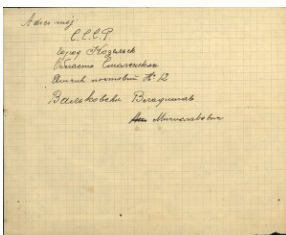 Adres mój
С.С.С.Р.
город Козельск
Область Смоленская
Ящик почтовый № 12
Вальковски Владислав
Мечиславович